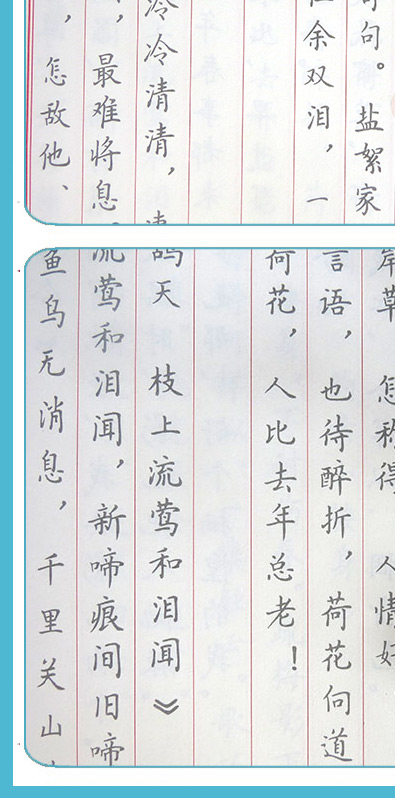 句。盐絮家
余双泪，一
冷冷清清，
，最难将息。
，怎敌他、
岸草 怎称得 人情好
言语，也待醉折，荷花向道
荷花，人比去年总老！
鸪天 枝上流莺和泪闻》
流莺和泪闻，新啼痕间旧啼
鱼鸟无消息，千里关山